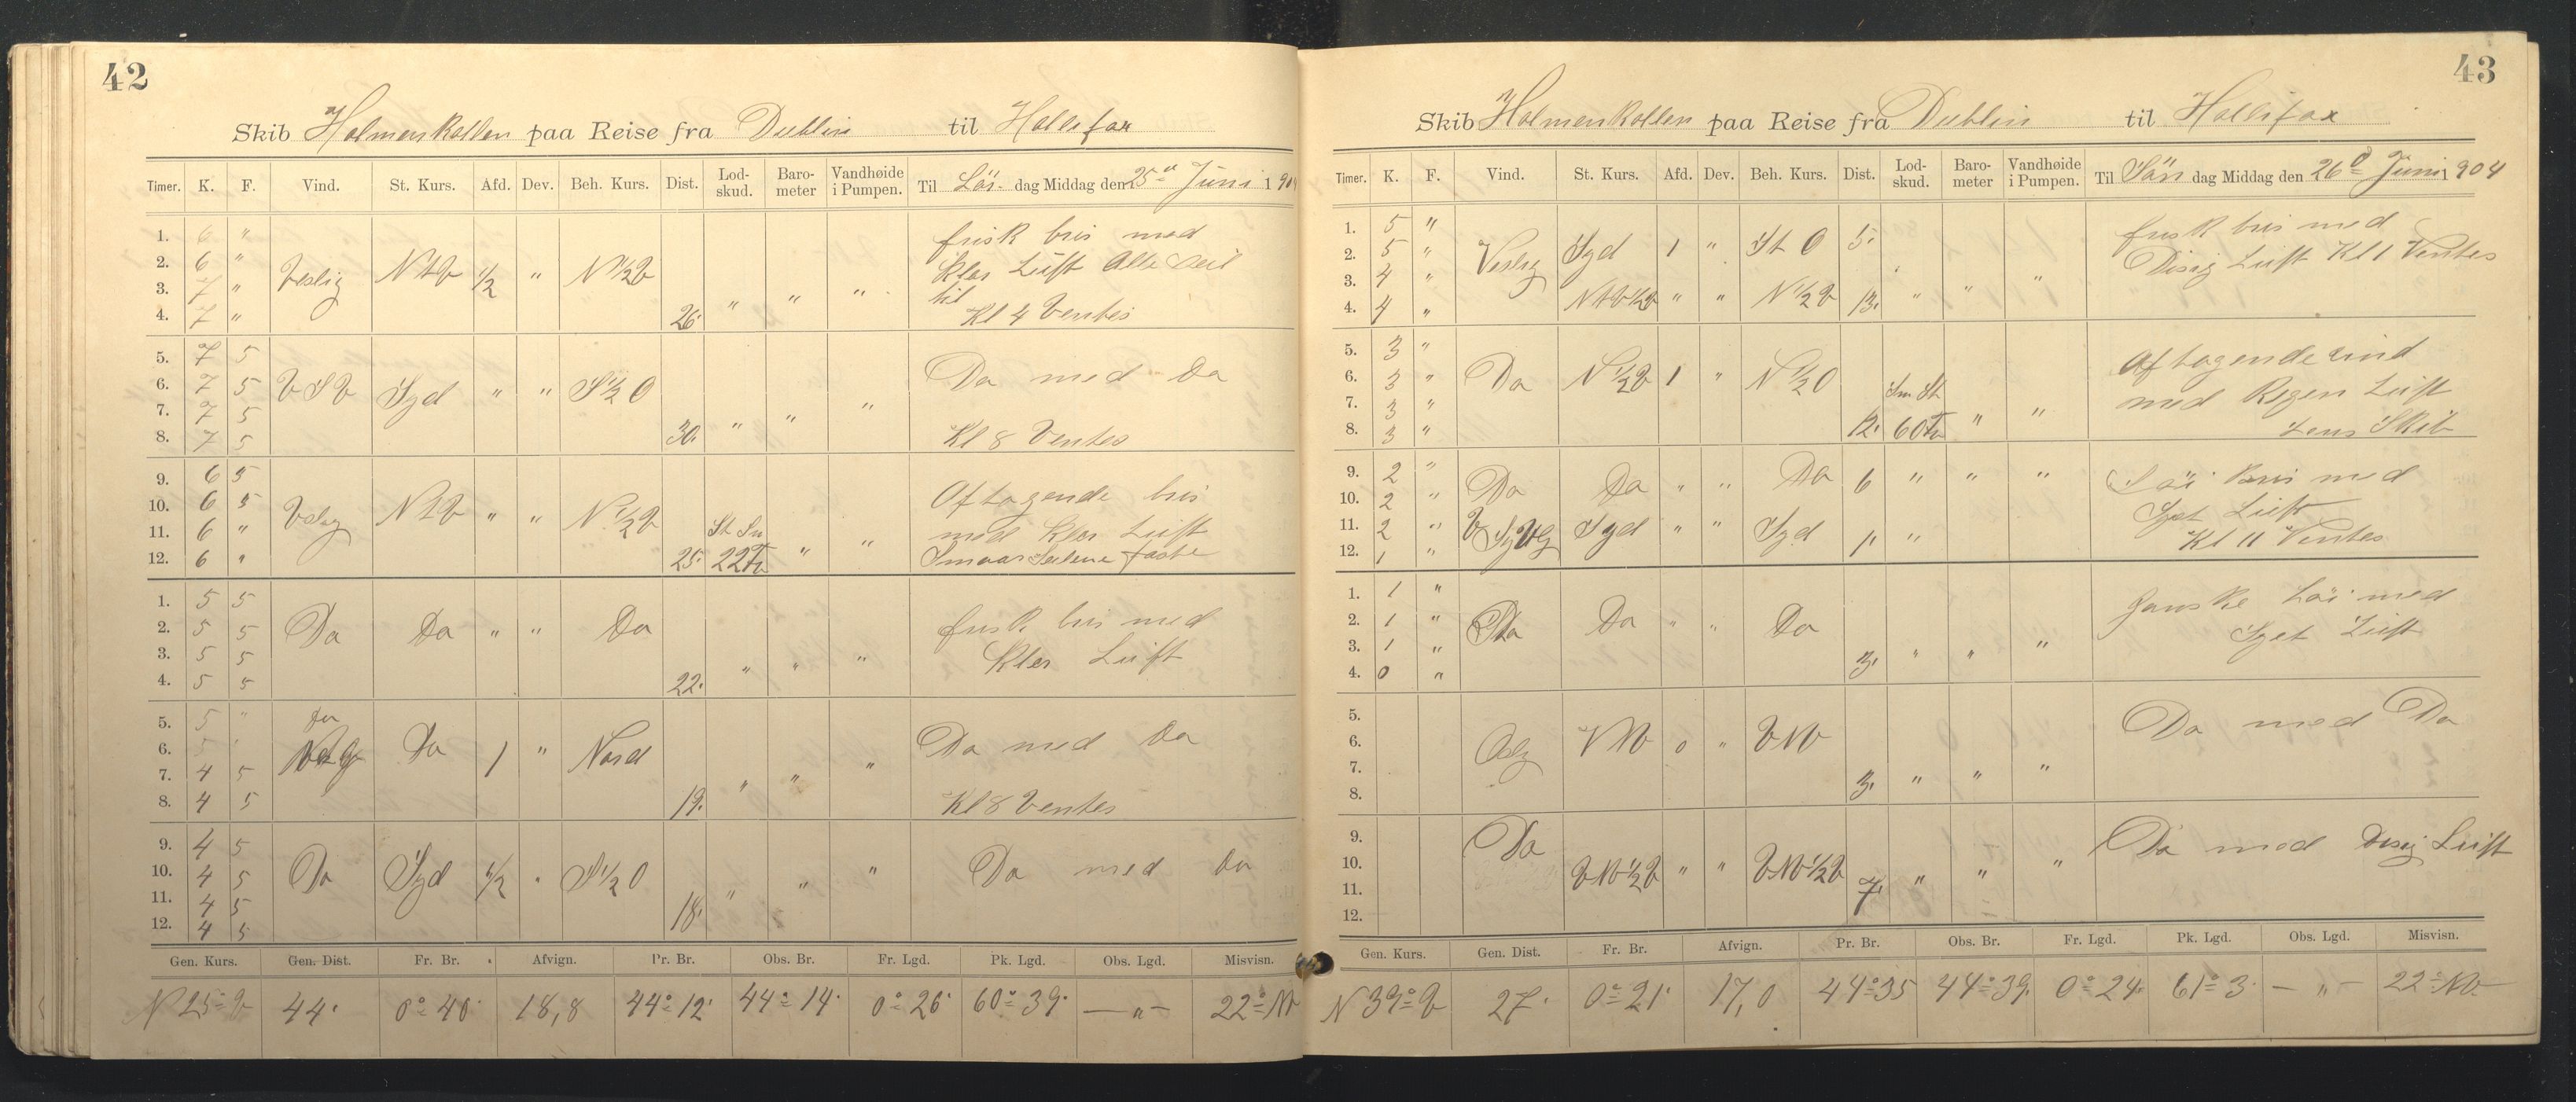 42
Skib Holmenkollen paa Reise fra Dublin til Hallifax
Timer. K. F. Vind. St. Kurs. Afd. Dev. Beh. Kurs. Dist. Lod-skud. Baro-meter Vandhøide i Pumpen. Til Lör dag Middag den 25 Juni 190
1. 6 " frisk bris med
2. 6 " Vestlig NtV 1/2 " N 1/2 V Klar Luft Alle Seil
3. 7 " til
4. 7 " 26. " " " Kl 4 Ventes
5. 7 5 Do med Do
6. 7 5 VSV Syd " " S 1/2 O
7. 7 5
8. 7 5 30. " " " Kl 8 Ventes
9. 6 5 Aftagende bris
10. 6 5 NtV " " N 1/2 V
11. 6 " St Sn med Klar Luft
12. 6 " 25. 22 " " Smaar Seilene faste
1. 5 5 frisk bris med
2. 5 5 Do Do " " Do
3. 5 5 Klar Luft
4. 5 5 22. " " "
5. 5 "
6. 5 " Do 1 " Nord Do med Do
7. 4 5
8. 4 5 19. " " " Kl 8 Ventes
9. 4 5
10. 4 5 Do Syd 1/2 " S 1/2 O " " " Do med Do
11. 4 5
12. 4 5 18.
Gen. Kurs. Gen. Dist. Fr. Br. Afvign. Pr. Br. Obs. Br. Fr. Lgd. Pk. Lgd. Obs. Lgd. Misvisn.
N 25° V 44' 0° 40' 18,8 44° 12' 44° 14' 0° 26' 60° 39' — " — 22° NV
43
Skib Holmenkollen paa Reise fra Dublin til Hallifax
Timer. K. F. Vind. St. Kurs. Afd. Dev. Beh. Kurs. Dist. Lod-skud. Baro-meter Vandhøide i Pumpen. Til Sön dag Middag den 26 Juni 1904
1. 5 " frisk bris med
2. 5 " Vestlig Syd 1 " St O 5. Disig Luft Kl 1 Ventes
3. 4 "
4. 4 " NtV 1/2 V " " N 1/2 V 13. " " "
5. 3 " Aftagende vind
6. 3 " Do N 1/2 V 1 " N 1/2 O
7. 3 " Sm St med Regen Luft
8. 3 " 12. 60 " " Lens Skib
9. 2 " Do Do " " Do 6 " " " Löi bris med
10. 2 " Tyet Luft
11. 2 " Syd " " Syd Kl 11 Ventes
12. 1 " 1. "
1. 1 " Ganske Löi med
2. 1 " Do " " Do Tyet Luft
3. 1 "
4. 0 " 3. " " "
5. Do med Do
6. VNV 0 " VNV
7.
8. 3. " " "
9. Do
10. VNV 1/2 V " " VNV 1/2 V 7. " " " Do med Disig Luft
11.
12.
Gen. Kurs. Gen. Dist. Fr. Br. Afvign. Pr. Br. Obs. Br. Fr. Lgd. Pk. Lgd. Obs. Lgd. Misvisn.
N 39° V 27' 0° 21' 17,0 44° 35 44° 39' 0° 24' 61° 3' — " — 22° NV